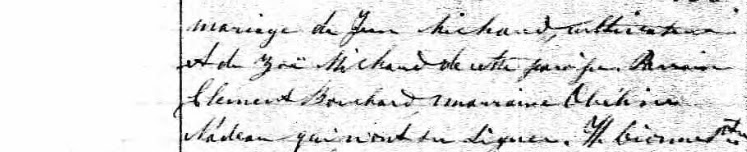 mariage de Jean Michaud, cultivateur
et de Zoë Michaud de cette paroisse. Parrain
Clement Bouchard, marraine
Nadeau qui n'ont su signer. Th.